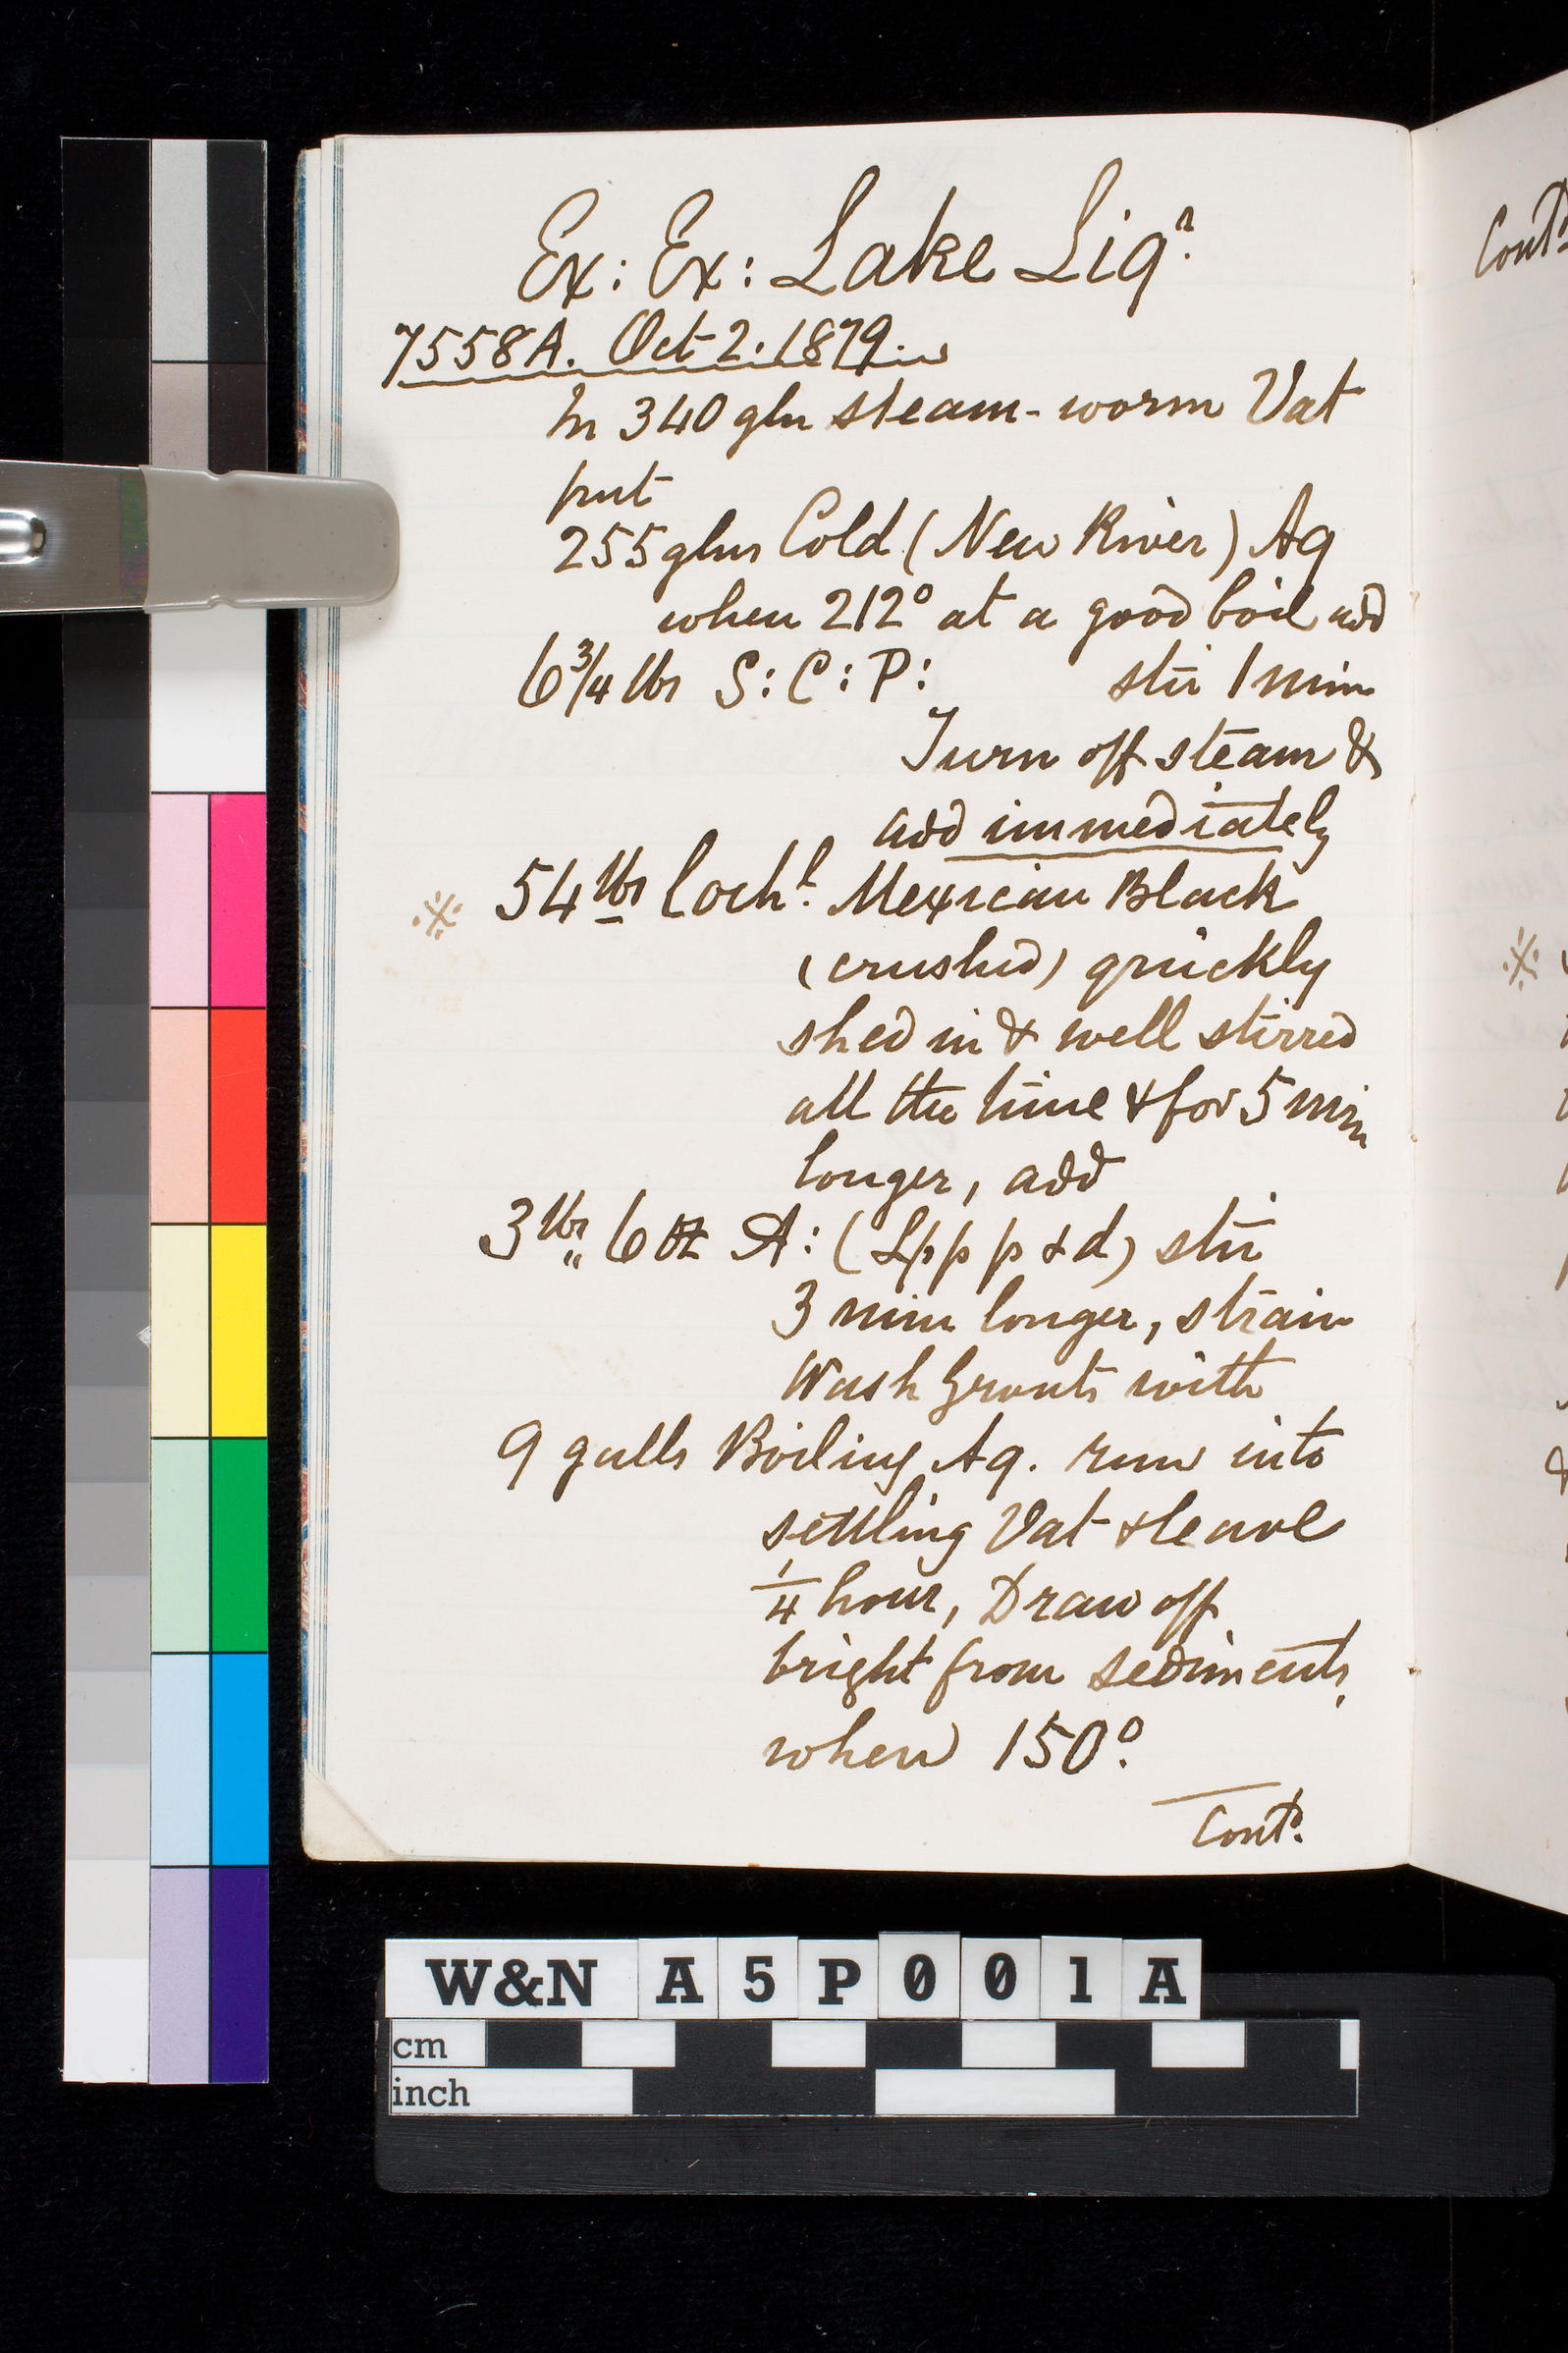 Ex: Ex: Lake Liqr.
7558A. Oct 2. 1879.
In 340 gln steam-worm Vat
put
255 glns Cold (New River) Aq
when 212° at a good boil add
6 3/4 lbs S: C: P: stir 1 min
Turn off steam &
add immediately
※ 54 lbs Cochl. Mexican Black
(crushed) quickly
shed in & well stirred
all the time & for 5 min
longer, add
3 lbs 6 oz A: (Lpp p & d) stir
3 min longer, strain
Wash Grouts with
9 galls Boiling Aq. run into
settling Vat & leave
1/4 hour, Draw off
bright from sediments,
when 150°.
Contd.
Contd
※
W&N A5P001A
cm
inch